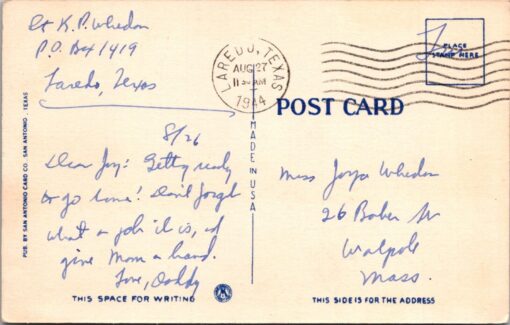 Lt K.P. Whedon
P.O. Box 1419
Laredo, Texas
LAREDO, TEXAS
AUG 27
11 30 AM
1944
Free
PLACE
STAMP HERE
POST CARD
MADE IN U.S.A.
PUB. BY SAN ANTONIO CARD CO. SAN ANTONIO, TEXAS
8/26
Dear Joy: Getting ready
to go home! Don't forget
what a job it is, &
give Mom a hand.
Love, Daddy
Miss Whedon
26 Baker
Walpole
Mass.
THIS SPACE FOR WRITING
THIS SIDE IS FOR THE ADDRESS